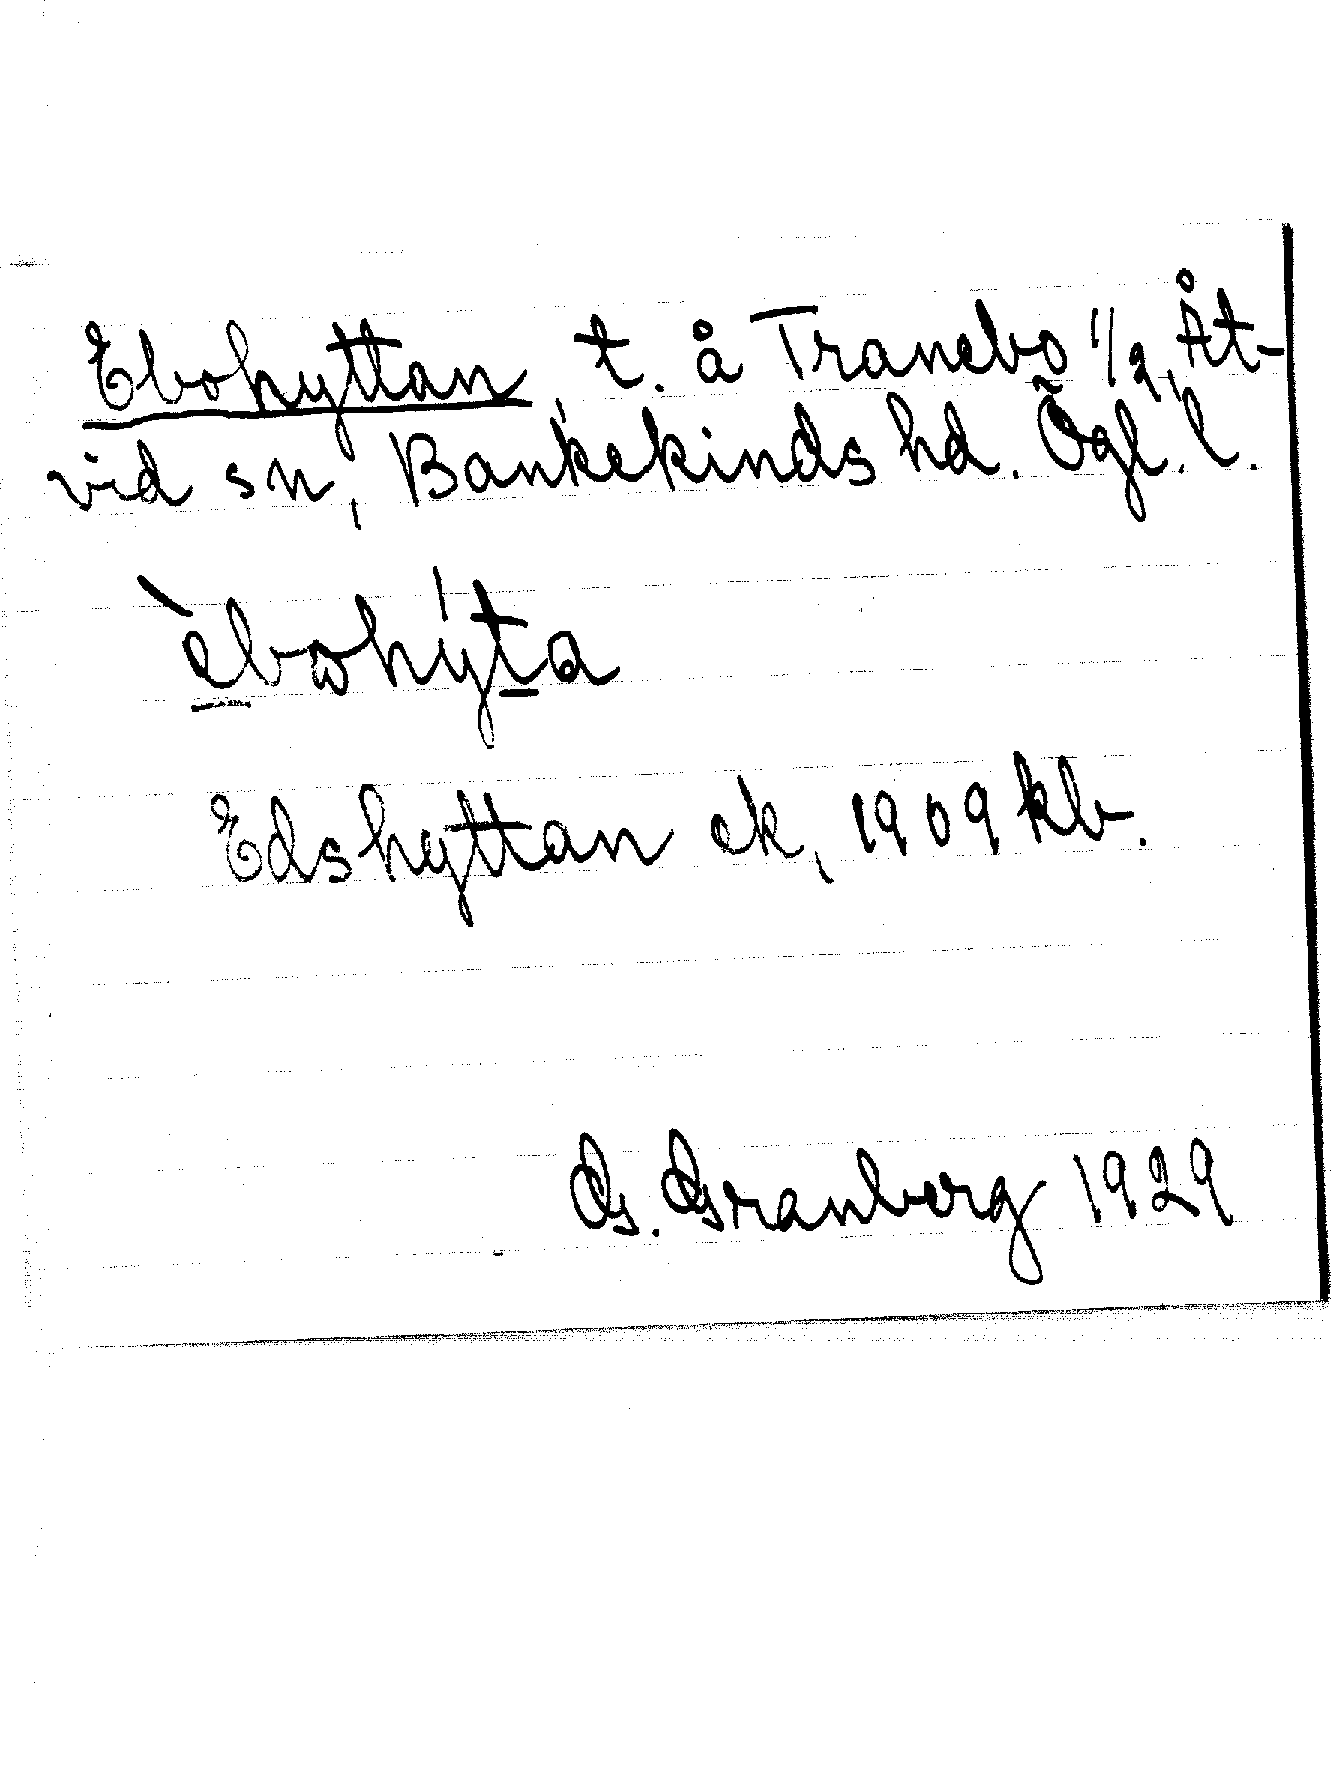 Ebohyttan, t. å Tranebo 1/2, Åt-
vid sn, Bankekinds hd. Ögl. l.
èbohyta
Edshyttan ek, 1909 kb.
G. Granberg 1929